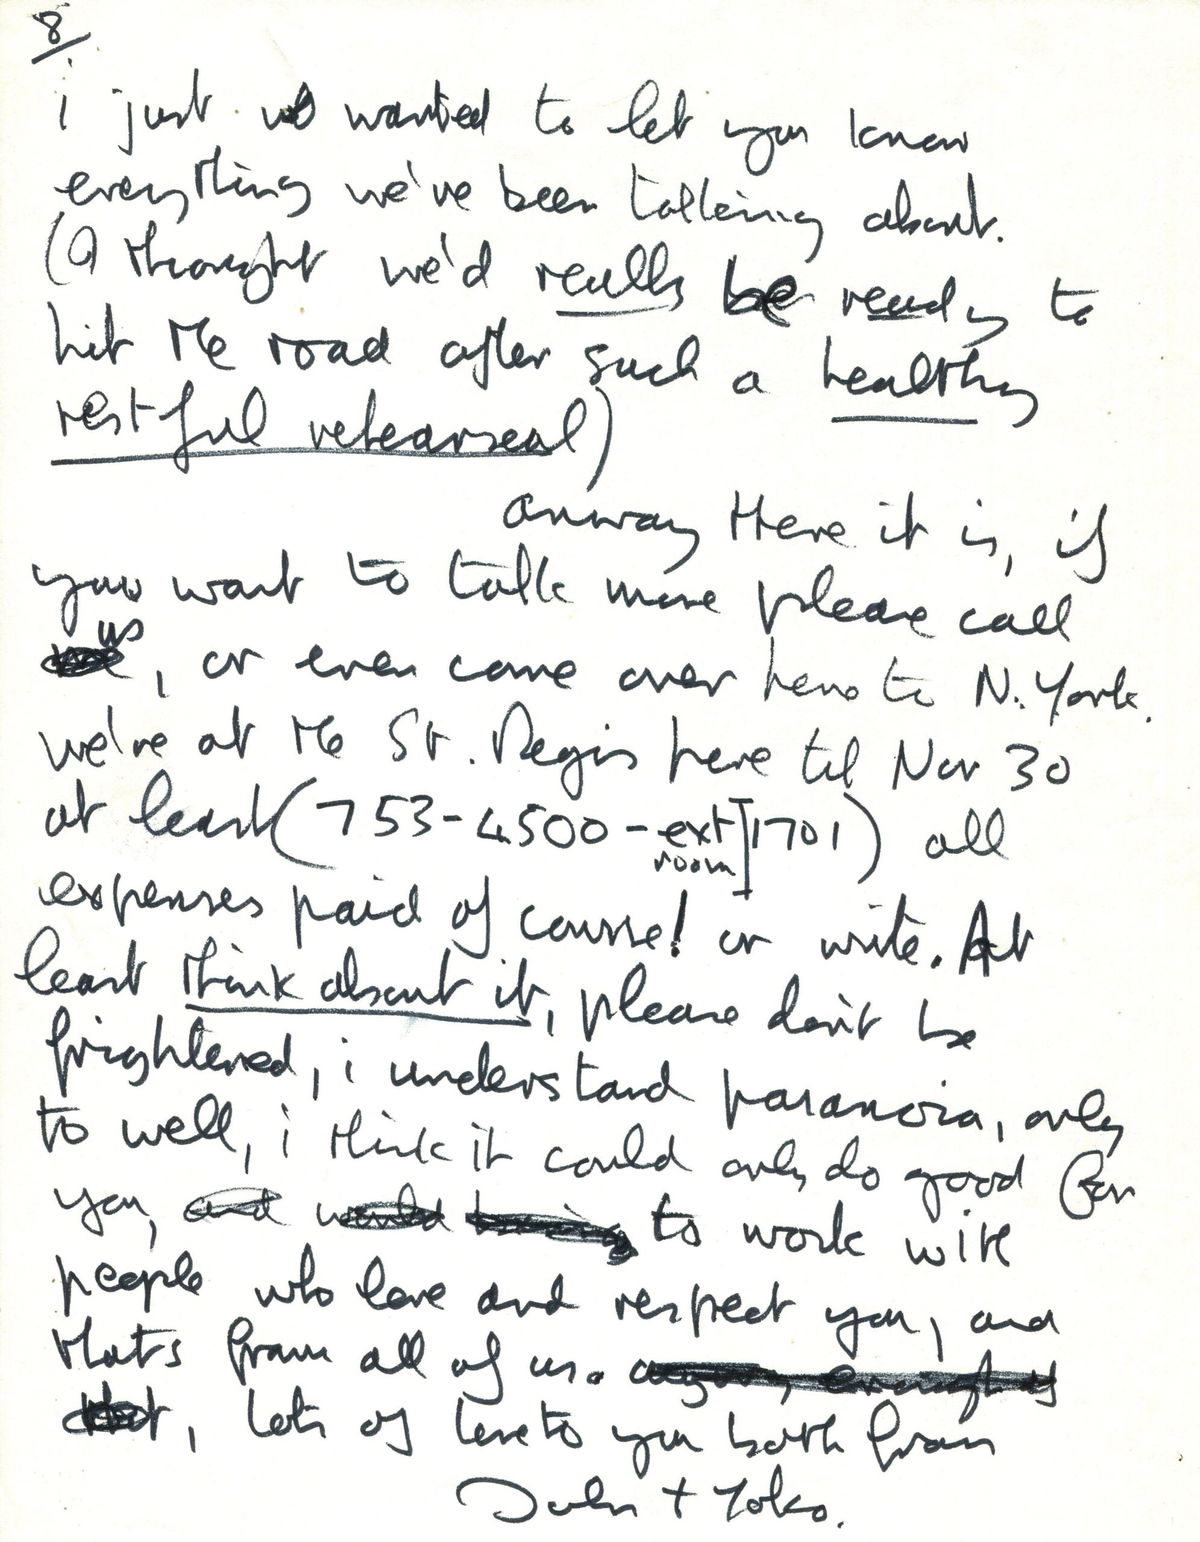 8
i just wanted to let you know
everything we've been talking about.
(I thought we'd really be ready to
hit the road after such a healthy
restful rehearseal)
anway there it is, if
you want to talk more please call
us
, or even come over here to N. York.
we're at the St. Regis here til Nov 30
at least (753-4500-ext] 1701) all
room
expenses paid of course! or write. At
least think about it, please don't be
frightened, i understand paranoia, only
to well, i think it could only do good for
you, and would to work with
people who love and respect you, and
thats from all of us.
, lots of love to you both from
John + Yoko.